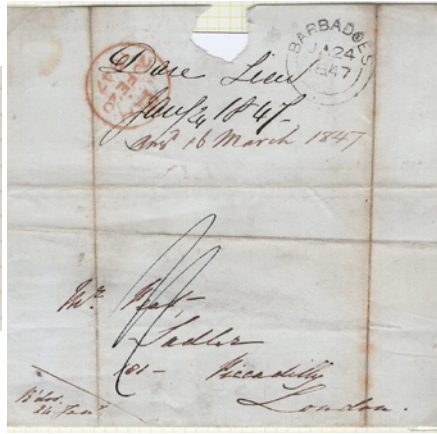 BARBADOES
JA 24
1847
20 FE 20
47
Dare Lieu
Jany 24 1847
ansd 16 March 1847
Mr
Sadler
181 - Piccadilly
London.
B'dos.
24 Jany